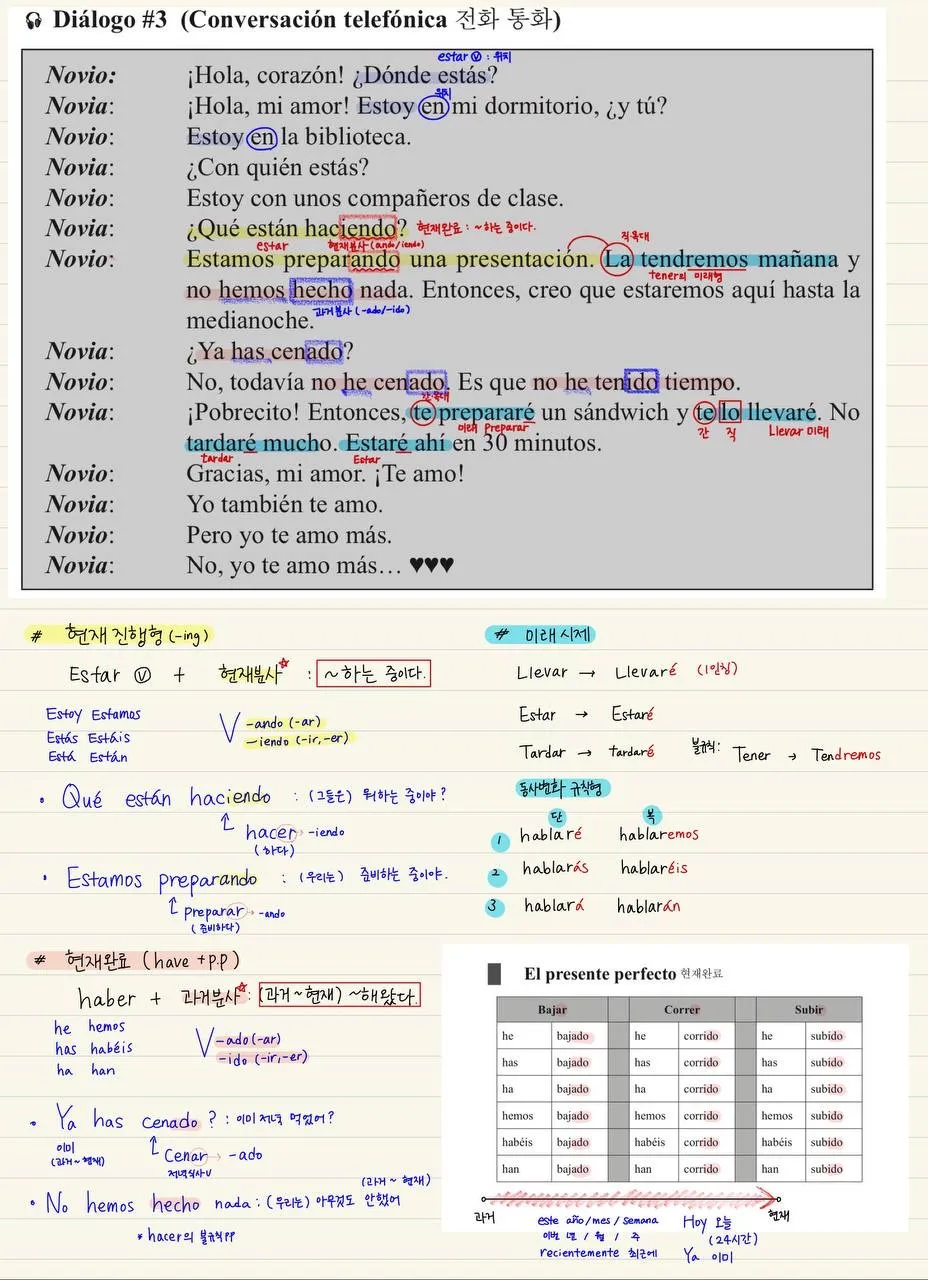 Diálogo #3 (Conversación telefónica 전화 통화)
estar ⓥ : 위치
Novio: ¡Hola, corazón! ¿Dónde estás?
위치
Novia: ¡Hola, mi amor! Estoy en mi dormitorio, ¿y tú?
Novio: Estoy en la biblioteca.
Novia: ¿Con quién estás?
Novio: Estoy con unos compañeros de clase.
Novia: ¿Qué están haciendo? 현재완료 : ~하는 중이다.
estar 현재분사 (ando/iendo) 직목대
Novio: Estamos preparando una presentación. La tendremos mañana y
tener의 미래형
no hemos hecho nada. Entonces, creo que estaremos aquí hasta la
과거분사 (-ado/-ido)
medianoche.
Novia: ¿Ya has cenado?
Novio: No, todavía no he cenado. Es que no he tenido tiempo.
간목대
Novia: ¡Pobrecito! Entonces, te prepararé un sándwich y te lo llevaré. No
미래 Preparar 간 직 Llevar 미래
tardaré mucho. Estaré ahí en 30 minutos.
tardar Estar
Novio: Gracias, mi amor. ¡Te amo!
Novia: Yo también te amo.
Novio: Pero yo te amo más.
Novia: No, yo te amo más… ♥♥♥
# 현재 진행형 (-ing)
Estar ⓥ + 현재분사☆ : ~하는 중이다.
Estoy Estamos
Estás Estáis
Está Están
V -ando (-ar)
-iendo (-ir, -er)
• Qué están haciendo : (그들은) 뭐하는 중이야?
hacer → -iendo
(하다)
• Estamos preparando : (우리는) 준비하는 중이야.
preparar → -ando
(준비하다)
# 미래 시제
Llevar → Llevaré (1인칭)
Estar → Estaré
Tardar → tardaré 불규칙: Tener → Tendremos
동사변화 규칙형
단 복
1 hablaré hablaremos
2 hablarás hablaréis
3 hablará hablarán
# 현재완료 (have +p.p)
haber + 과거분사☆ : (과거~현재) ~해왔다.
he hemos
has habéis
ha han
V -ado (-ar)
-ido (-ir, -er)
• Ya has cenado ? : 이미 저녁 먹었어?
이미
(과거~현재)
Cenar → -ado
저녁식사V
(과거 ~ 현재)
• No hemos hecho nada : (우리는) 아무것도 안했어
* hacer의 불규칙PP
El presente perfecto 현재완료
Bajar Correr Subir
he bajado he corrido he subido
has bajado has corrido has subido
ha bajado ha corrido ha subido
hemos bajado hemos corrido hemos subido
habéis bajado habéis corrido habéis subido
han bajado han corrido han subido
과거 현재
este año/mes/semana Hoy 오늘
이번 년 / 월 / 주 (24시간)
recientemente 최근에 Ya 이미